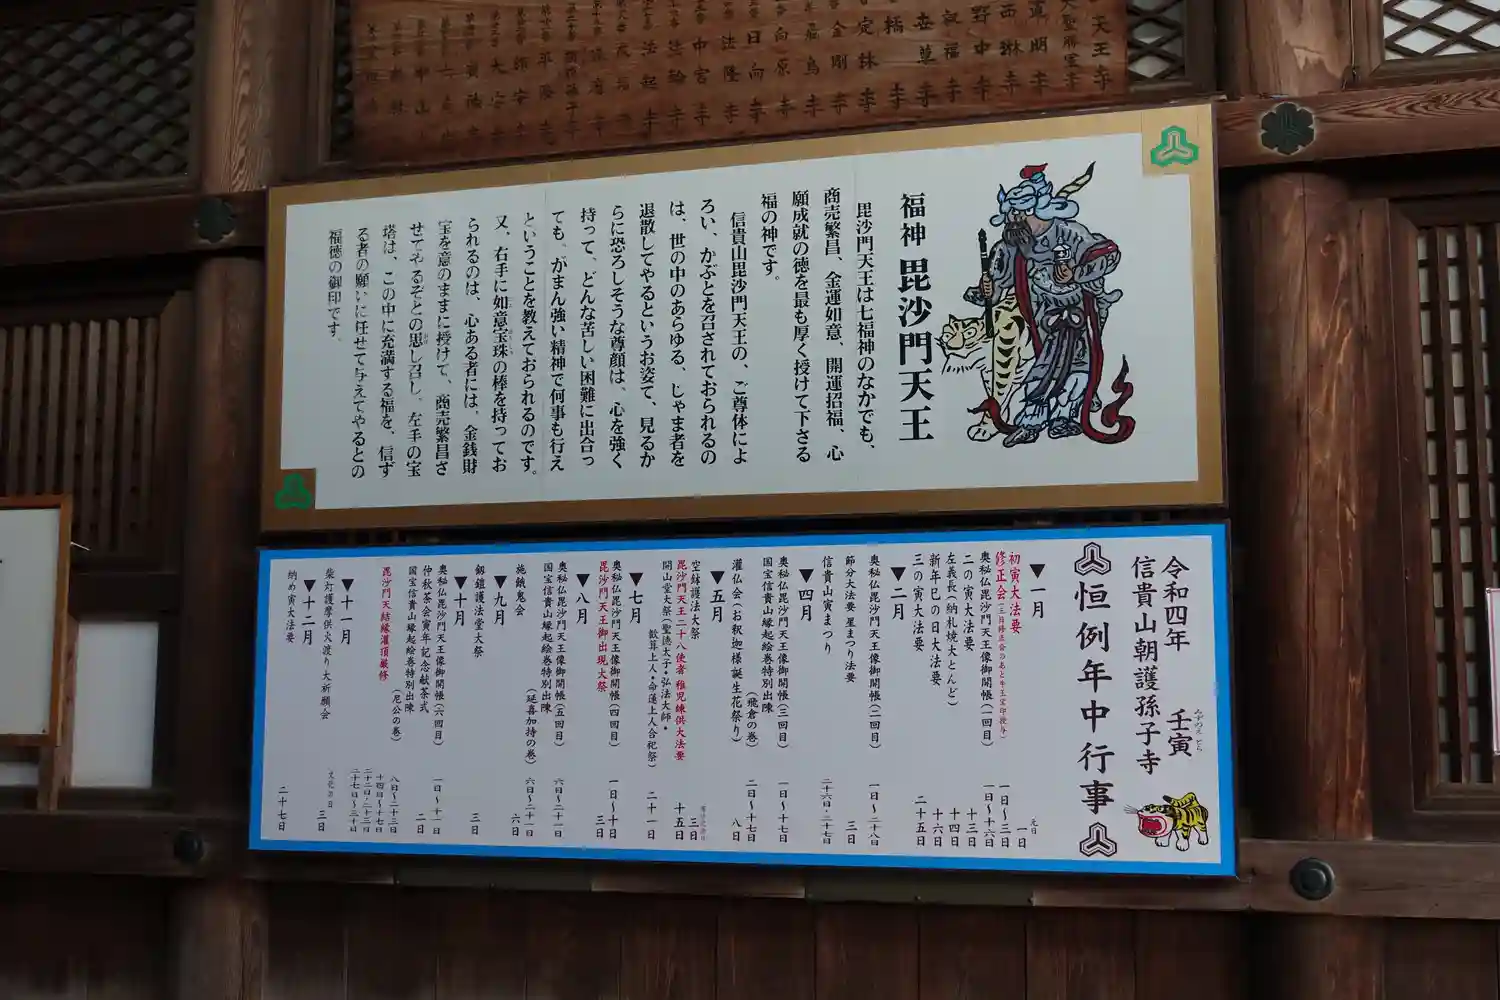 天王寺
大聖勝軍寺
西琳寺
野中寺
叡福寺
世尊寺
橘寺
定林寺
金剛寺
飛鳥寺
向原寺
日向寺
法隆寺
中宮寺
法輪寺
法起寺
福神 毘沙門天王
毘沙門天王は七福神のなかでも、
商売繁昌、金運如意、開運招福、心
願成就の徳を最も厚く授けて下さる
福の神です。
信貴山毘沙門天王の、ご尊体によ
ろい、かぶとを召されておられるの
は、世の中のあらゆる、じゃま者を
退散してやるというお姿て、見るか
らに恐ろしそうな尊顔は、心を強く
持って、どんな苦しい困難に出合っ
ても、がまん強い精神で何事も行え
ということを教えておられるのです。
又、右手に如意宝珠の棒を持ってお
られるのは、心ある者には、金銭財
宝を意のままに授けて、商売繁昌さ
せてやるぞとの思し召し。左手の宝
塔は、この中に充満する福を、信ず
る者の願いに任せて与えてやるとの
福徳の御印です。
令和四年 壬寅 みずのえとら
信貴山朝護孫子寺
恒例年中行事
▼一月
初寅大法要 元日 一日
修正会(三日修正会のあと牛王宝印授与) 一日～三日
奥秘仏毘沙門天王像御開帳(一回目) 一日～十六日
二の寅大法要 十三日
左義長(納札焼大とんど) 十四日
新年巳の日大法要 十六日
三の寅大法要 二十五日
▼二月
奥秘仏毘沙門天王像御開帳(二回目) 一日～二十八日
節分大法要 星まつり法要 三日
信貴山寅まつり 二十六日・二十七日
▼四月
奥秘仏毘沙門天王像御開帳(三回目) 一日～十七日
国宝信貴山縁起絵巻特別出陳(飛倉の巻) 二日～十七日
灌仏会(お釈迦様誕生花祭り) 八日
▼五月
空鉢護法大祭 三日
毘沙門天王二十八使者 稚児練供大法要 十五日
開山堂大祭(聖徳太子・弘法大師・
歓算上人・命蓮上人合祀祭) 二十一日
▼七月
奥秘仏毘沙門天王像御開帳(四回目) 一日～十日
毘沙門天王御出現大祭 三日
▼八月
奥秘仏毘沙門天王像御開帳(五回目) 六日～二十一日
国宝信貴山縁起絵巻特別出陳(延喜加持の巻) 六日～二十一日
施餓鬼会 六日
▼九月
剱鎧護法堂大祭 三日
▼十月
奥秘仏毘沙門天王像御開帳(六回目) 一日～十一日
仲秋茶会寅年記念献茶式 二日
国宝信貴山縁起絵巻特別出陳(尼公の巻) 八日～二十三日
毘沙門天結縁灌頂厳修 十四日～十七日
二十二日・二十三日
二十七日～三十日
▼十一月
柴灯護摩供火渡り大祈願会 文化の日 三日
▼十二月
納め寅大法要 二十七日